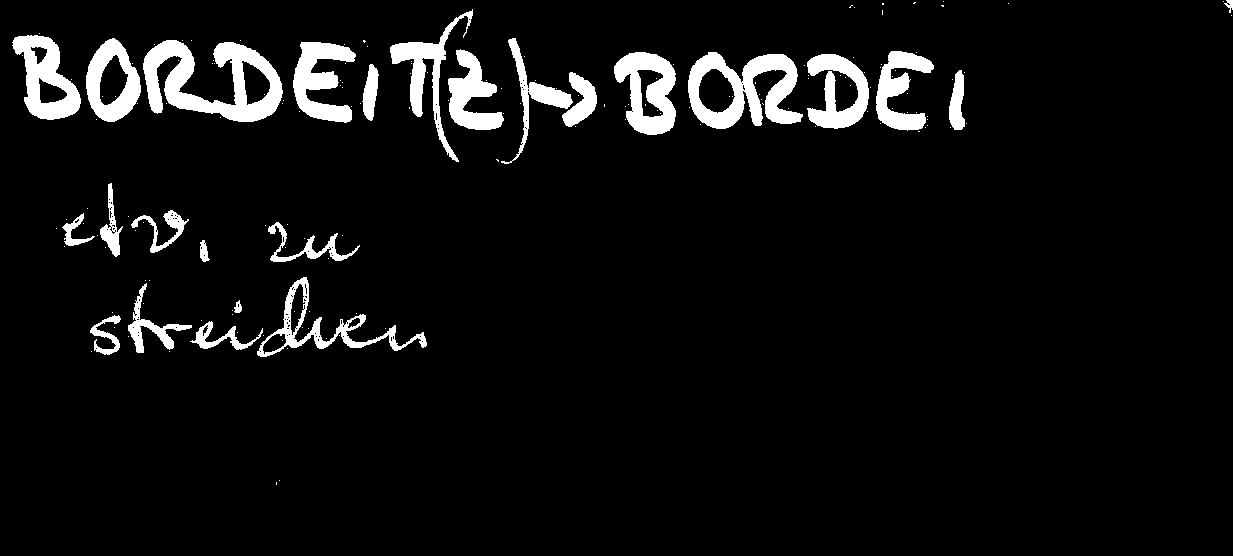 BORDEIT(Z) → BORDEI
etv. zu
streichen